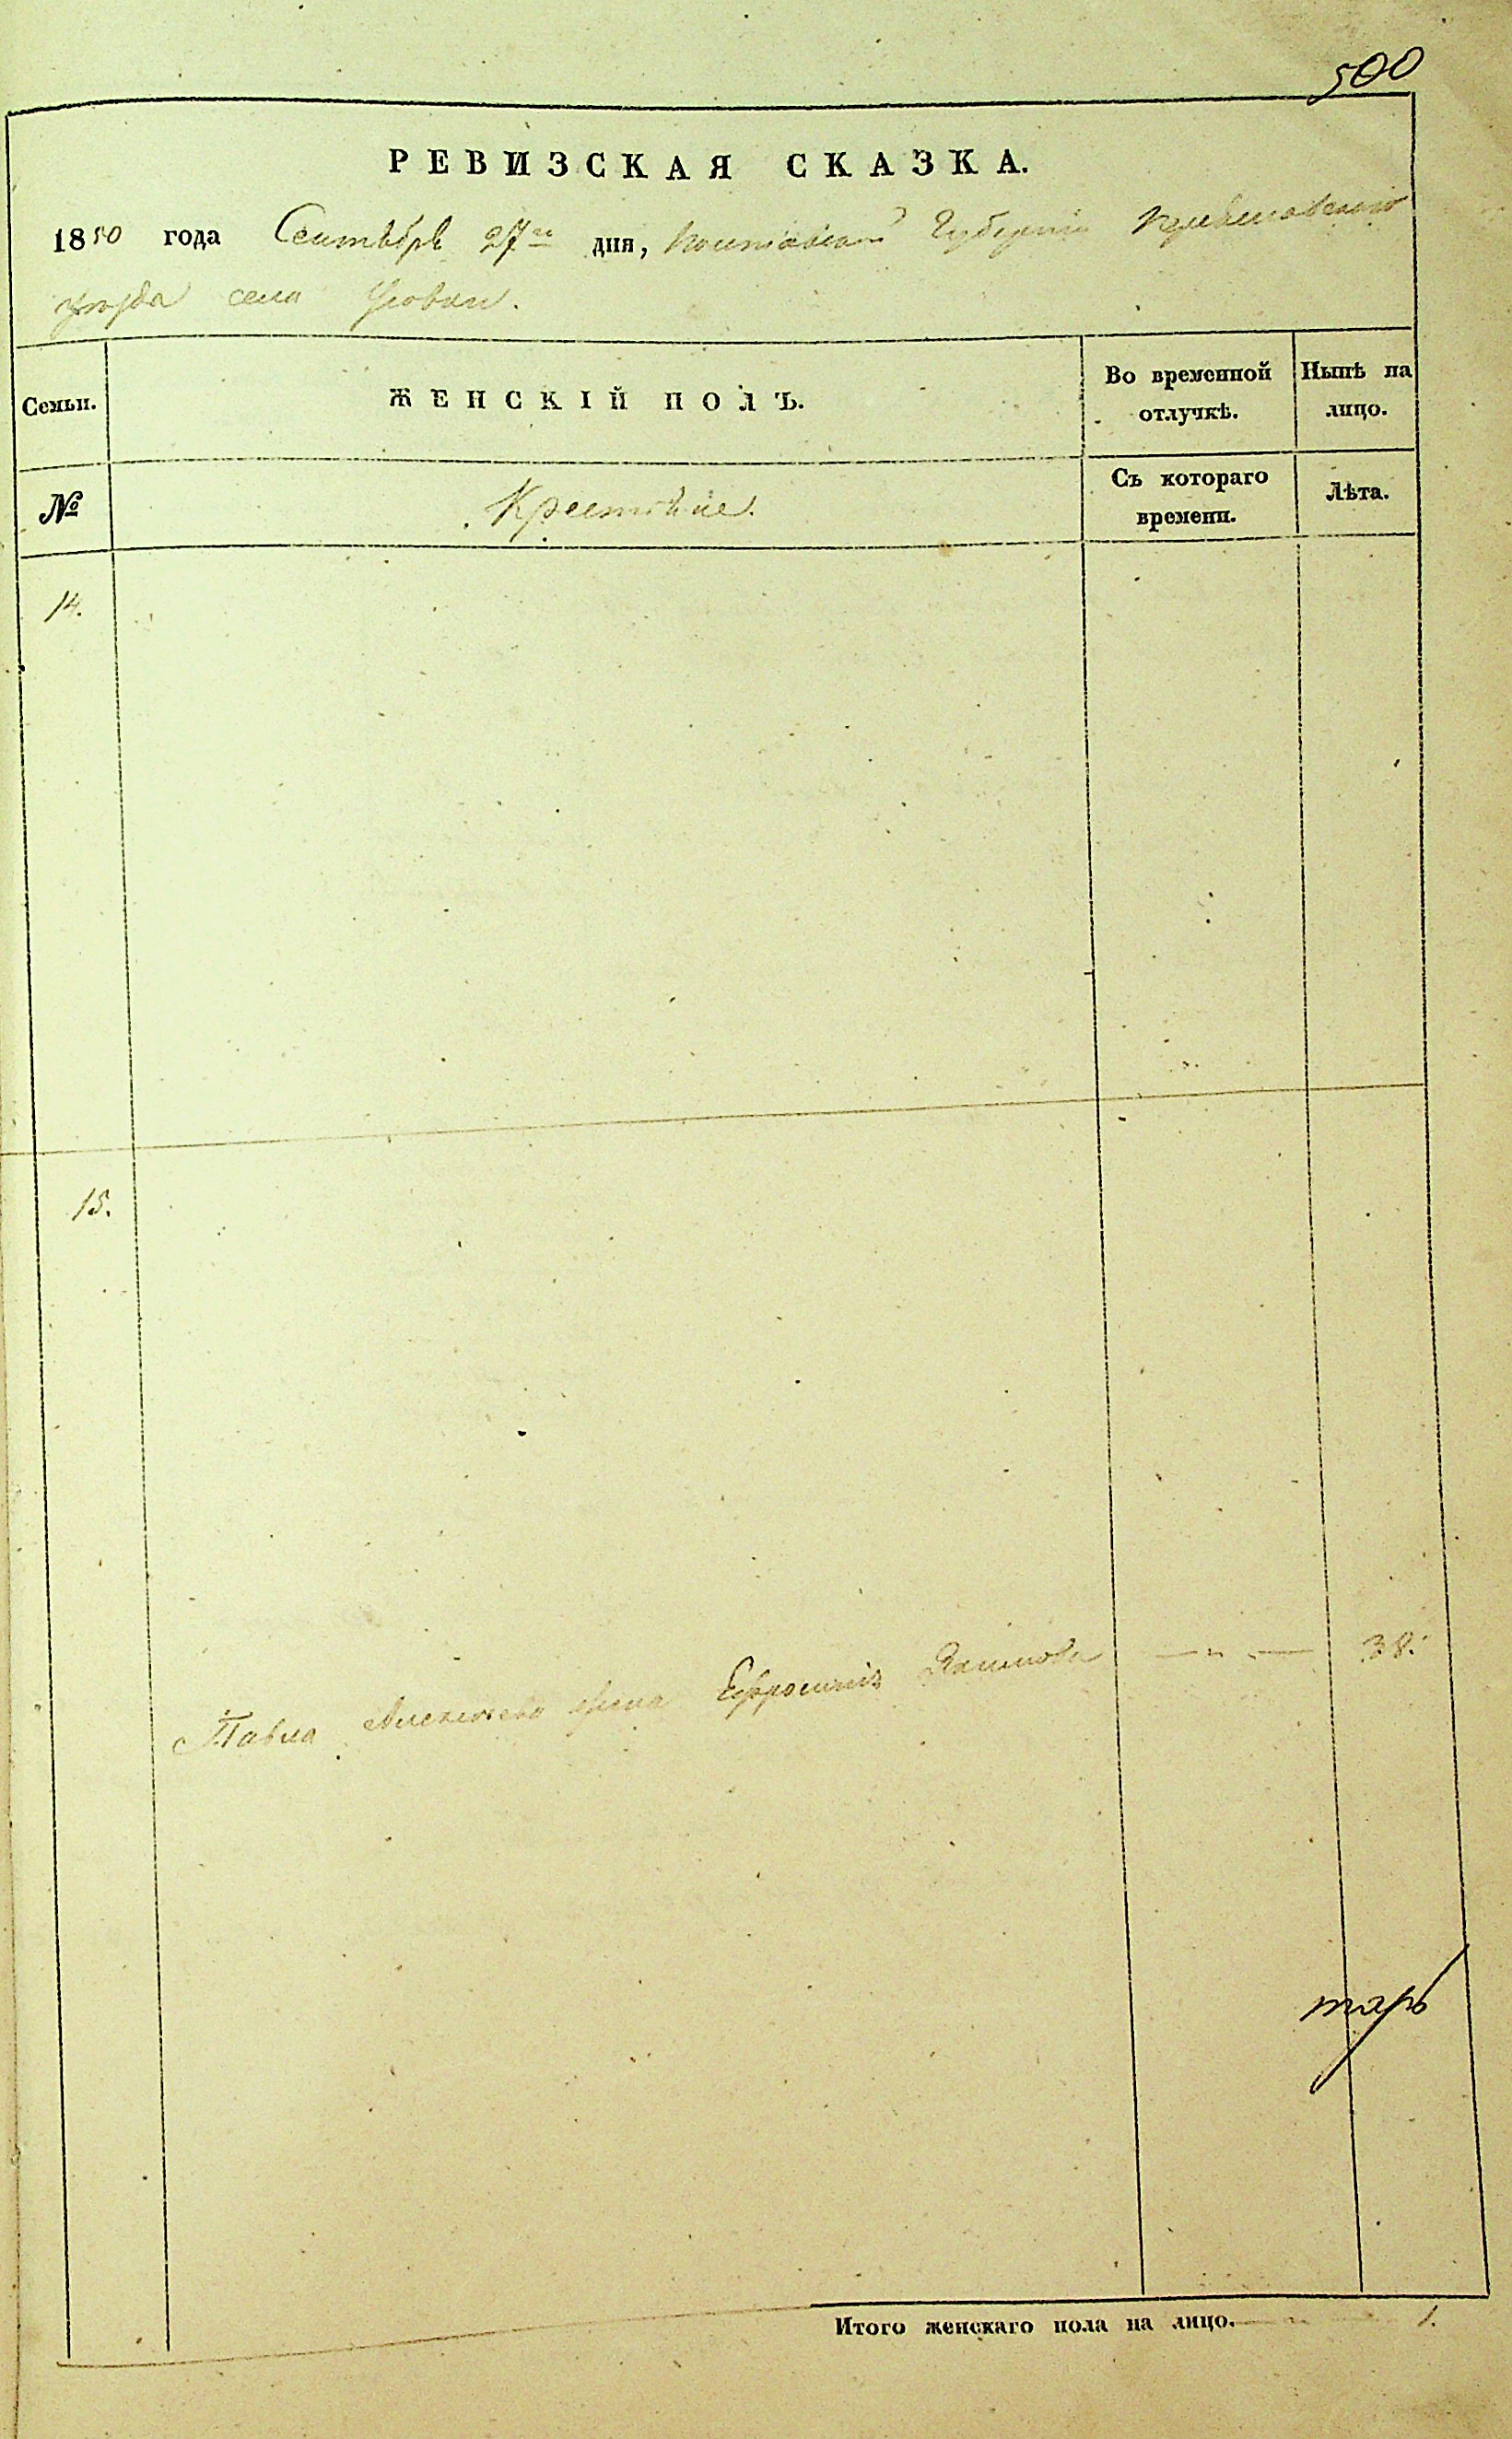 500
РЕВИЗСКАЯ СКАЗКА.
1850 года Сентября 27го дня, Полтавской Губернии
уезда села
Семьи.
ЖЕНСКІЙ ПОЛЪ.
Во временной отлучкѣ.
Нынѣ на лицо.
№
Крестьяне.
Съ котораго времени.
Лѣта.
14.
15.
Павла Алексеева жена Ефросинія — " — 38.
Итого женскаго пола на лицо. — " — 1.